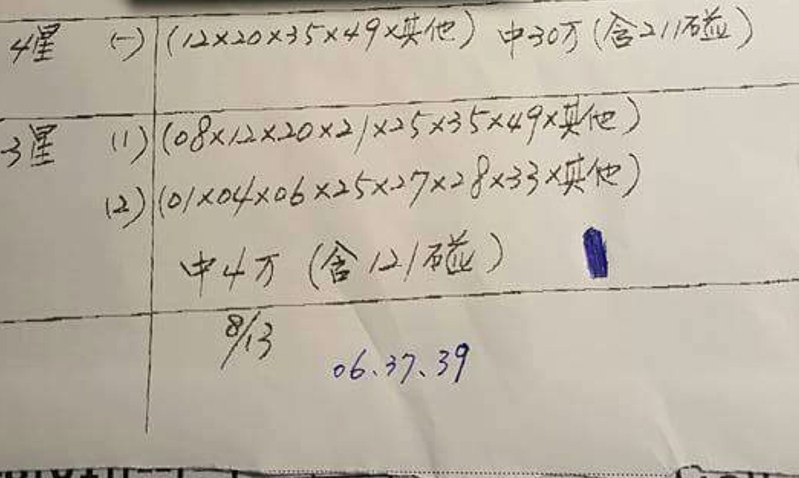 4星 (一) (12×20×35×49×其他) 中30万(含211碰)
3星 (1) (08×12×20×21×25×35×49×其他)
(2) (01×04×06×25×27×28×33×其他)
中4万 (含121碰)
8/13
06、37、39